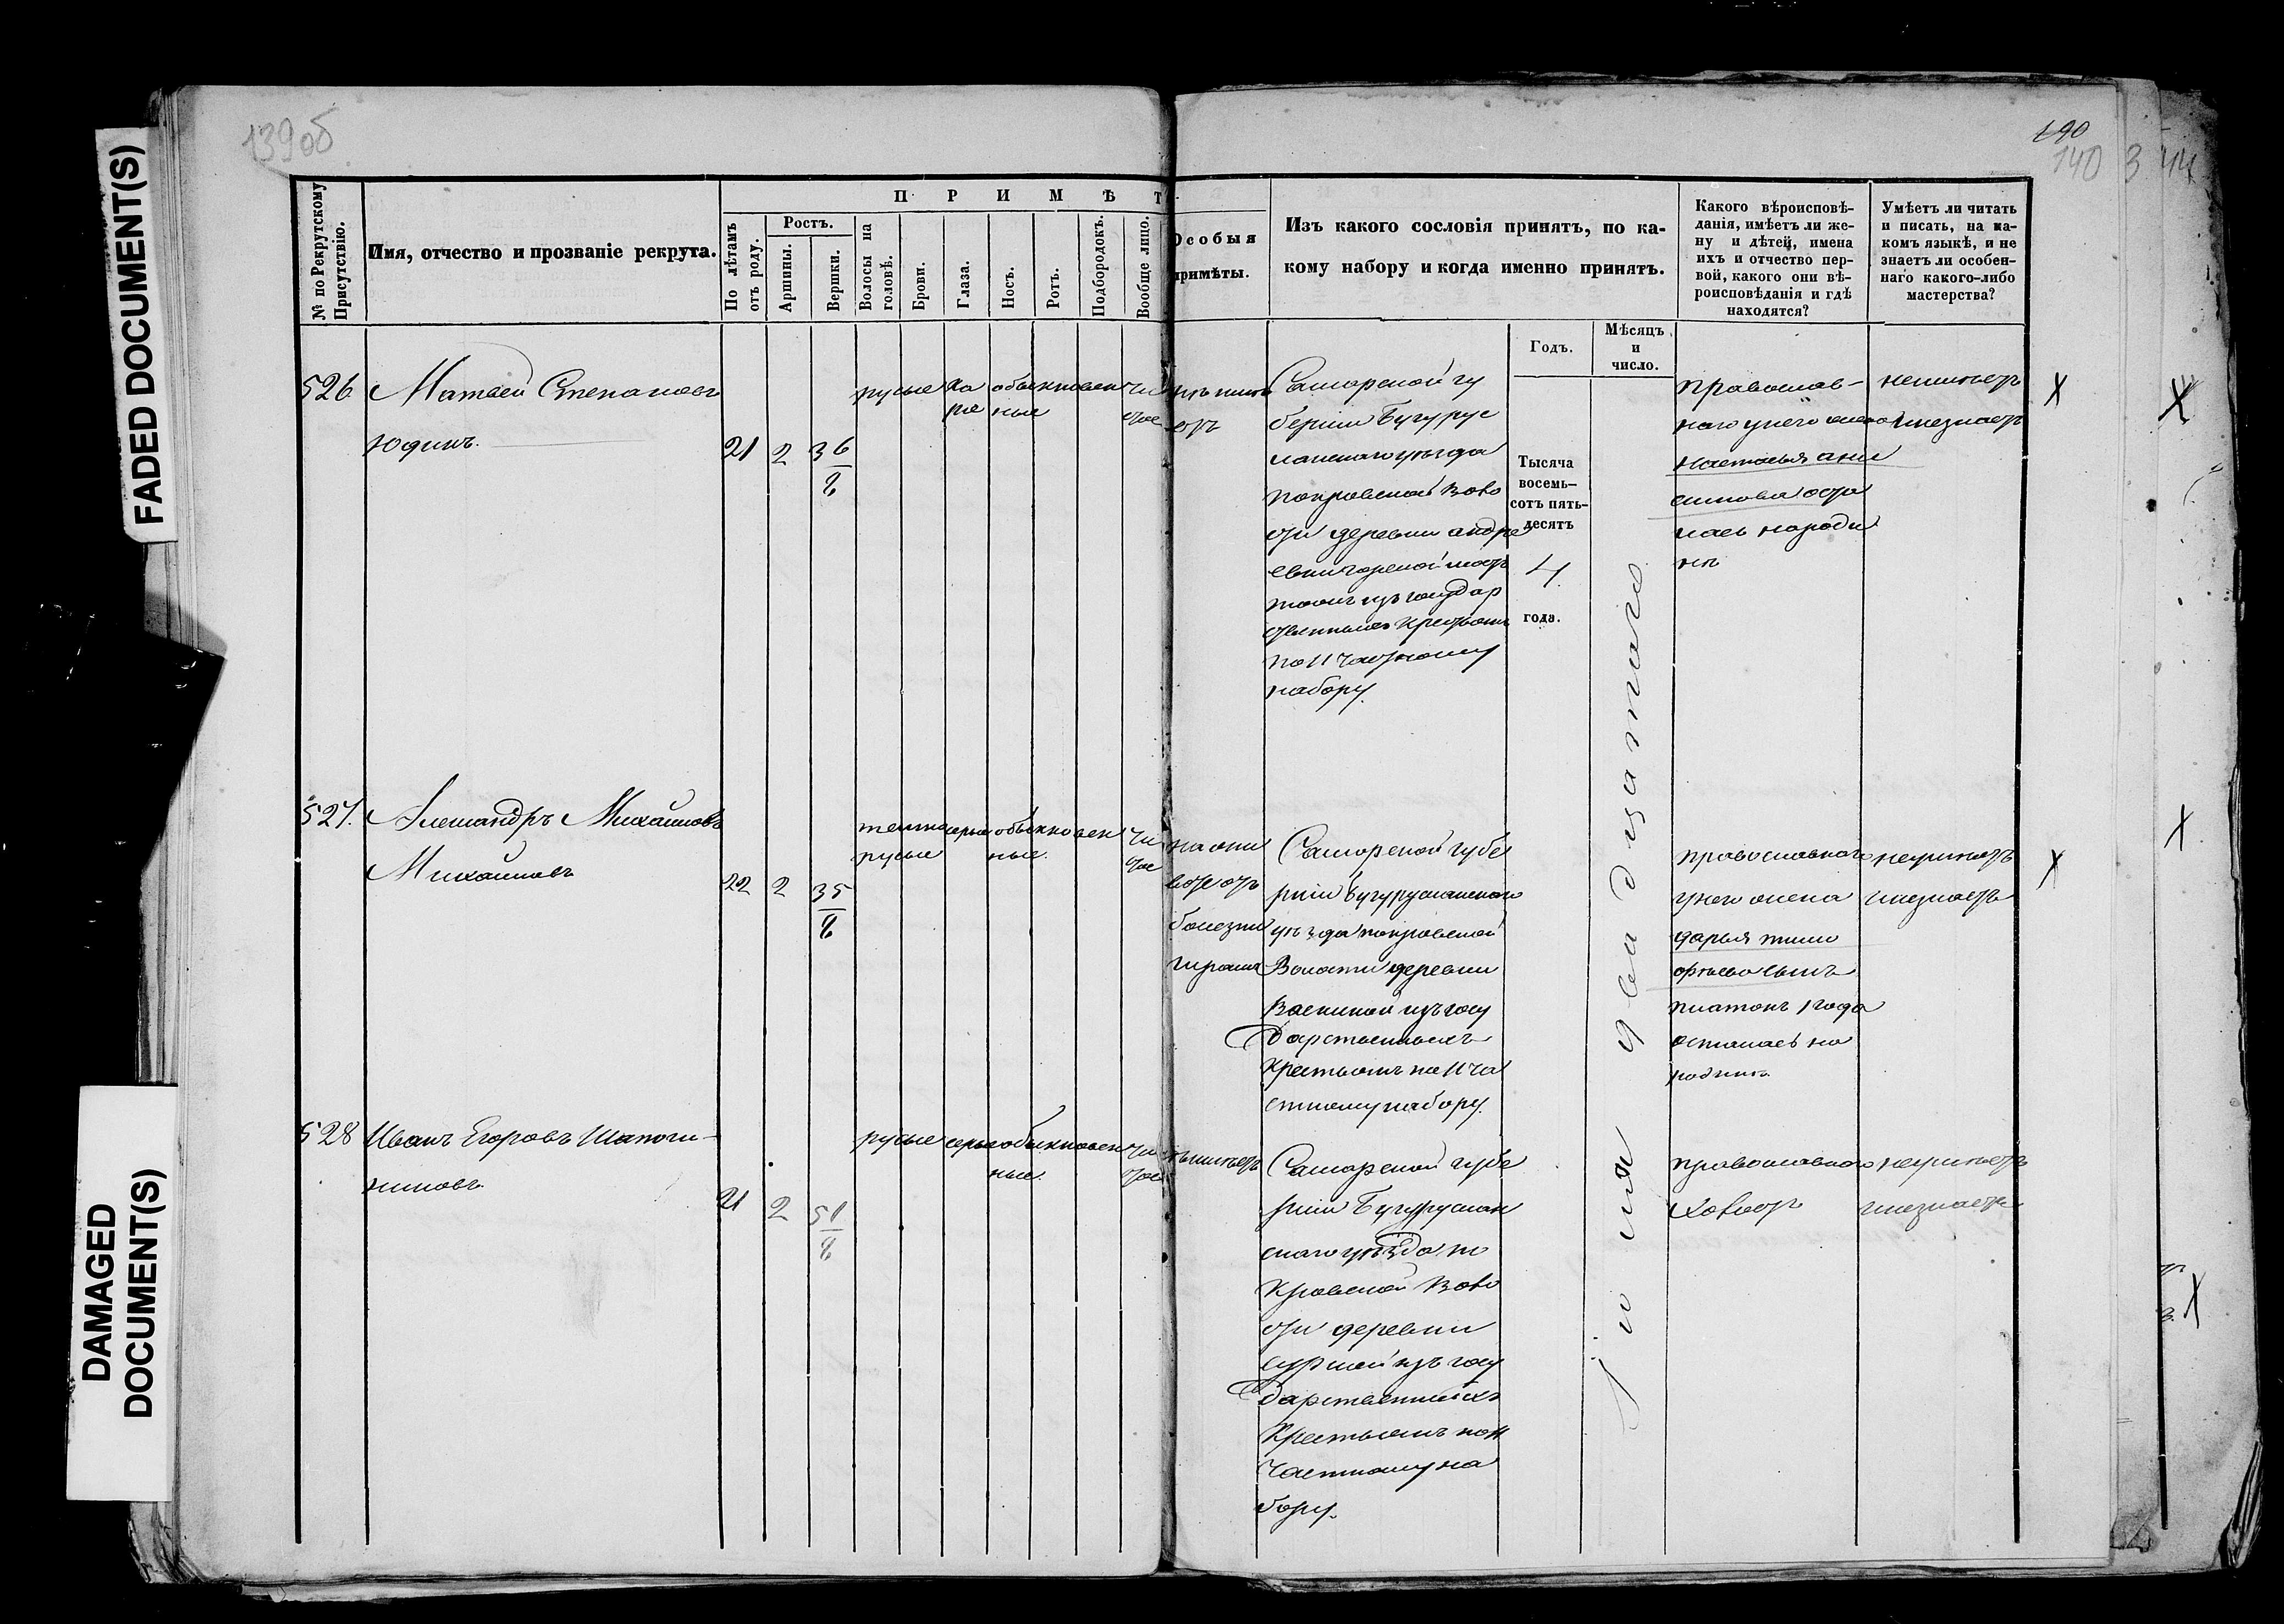 FADED DOCUMENT(S)
DAMAGED
DOCUMENT(S)
139об
190
140
3
44
№ по Рекрутскому
Присутствію.
Имя, отчество и прозваніе рекрута.
ПРИМѢТ
По лѣтамъ
отъ роду.
Ростъ.
Аршины.
Вершки.
Волосы на
головѣ.
Брови.
Глаза.
Носъ.
Ротъ.
Подбородокъ.
Вообще лицо.
Особыя
примѣты.
Изъ какого сословія принятъ, по ка-
кому набору и когда именно принятъ.
Какого вѣроисповѣ-
данія, имѣетъ ли же-
ну и дѣтей, имена
ихъ и отчество пер-
вой, какого они вѣ-
роисповѣданія и гдѣ
находятся?
Умѣетъ ли читать
и писать, на ка-
комъ языкѣ, и не
знаетъ ли особен-
наго какого-либо
мастерства?
Годъ.
Мѣсяцъ
и
число.
Тысяча
восемь-
сотъ пять-
десятъ
4
года.
Іюня двадцатаго
526
Матвей Степановъ
Юдинъ.
21 2 3 6/8
русые
ка
рie
обыкновен
ные
чи
стое
Самарской гу
берніи Бугурус
ланскаго уезда
покровской Воло
сти деревни андре
изъ государ
ственныхъ крестьянъ
по 11 частному
набору.
православ-
наго у него жена
настасья ани
симова оста
лась на роди
не
неумеетъ
и незнаетъ
X
X
527.
Александръ Михайловъ
Михайловъ
22 2 3 5/8
темно
русые
серые
обыкновен
ные.
чи
стое
болезни
Самарской губе
рніи Бугурусланскаго
уезда покровской
Волости деревни
изъ госу
дарственныхъ
Крестьянъ по 11 ча
стному набору.
православнаго
у него жена
дарья тимо
феева сынъ
платонъ 1 года
осталась на
родине
неумеетъ
и незнаетъ
X
X
528
Иванъ Егоровъ
21 2 5 1/8
русые
серые
обыкновен
ные.
чи
стое
Самарской губе
рніи Бугуруслан
скаго уезда по
кровской Воло
сти деревни
изъ госу
дарственныхъ
Крестьянъ по 11
частному на
бору.
православнаго
холостъ
неумеетъ
и незнаетъ
X